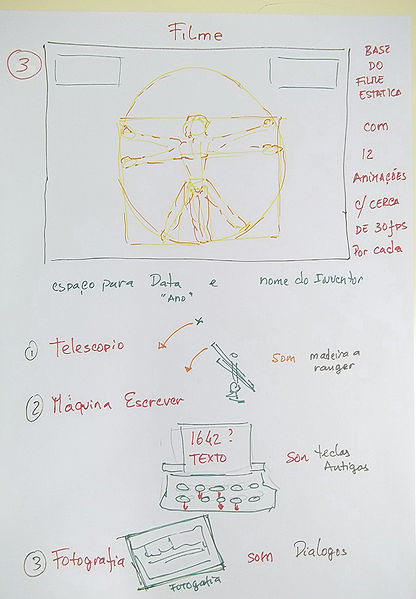 Filme
3
BASE
DO
FILME
ESTATICA
com
12
ANIMAÇÕES
C/ CERCA
DE 30 fps
Por cada
espaço para Data e nome do Inventor
"Ano"
1 Telescopio
som madeira a
ranger
2 Máquina Escrever
1642 ?
TEXTO
som teclas
Antigas
3 Fotografia
som Dialogos
FOTOGRAFIA